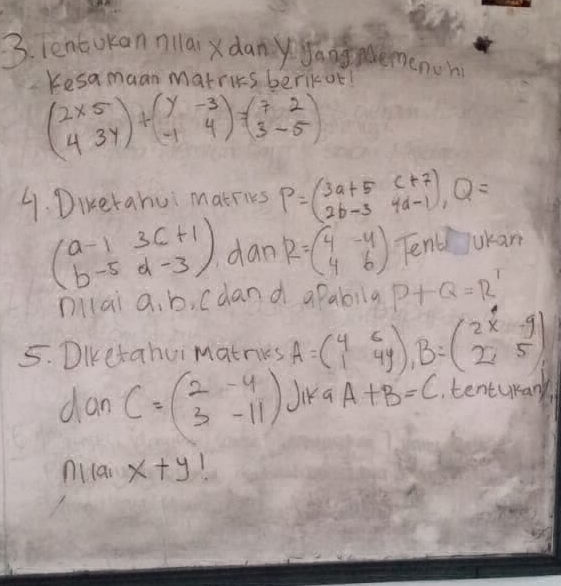 3. Tentukan nilai x dan y yang Memenuhi
Kesamaan matriks berikut!
(2x 5 + (y -3 = (7 2
4 3y) -1 4) 3 -5)
4. Diketahui matriks P = (3a+5 c+7 , Q =
2b-3 4d-1)
(a-1 3c+1 , dan R = (4 -4 Tent ukan
b-5 d-3) 4 6)
nilai a, b, c dan d apabila P + Q = R^T
5. Diketahui Matriks A = (4 c , B = (2x -9
1 4y) 2 5)
dan C = (2 -4 Jika A + B = C, tentukan
3 -11)
nilai x + y!